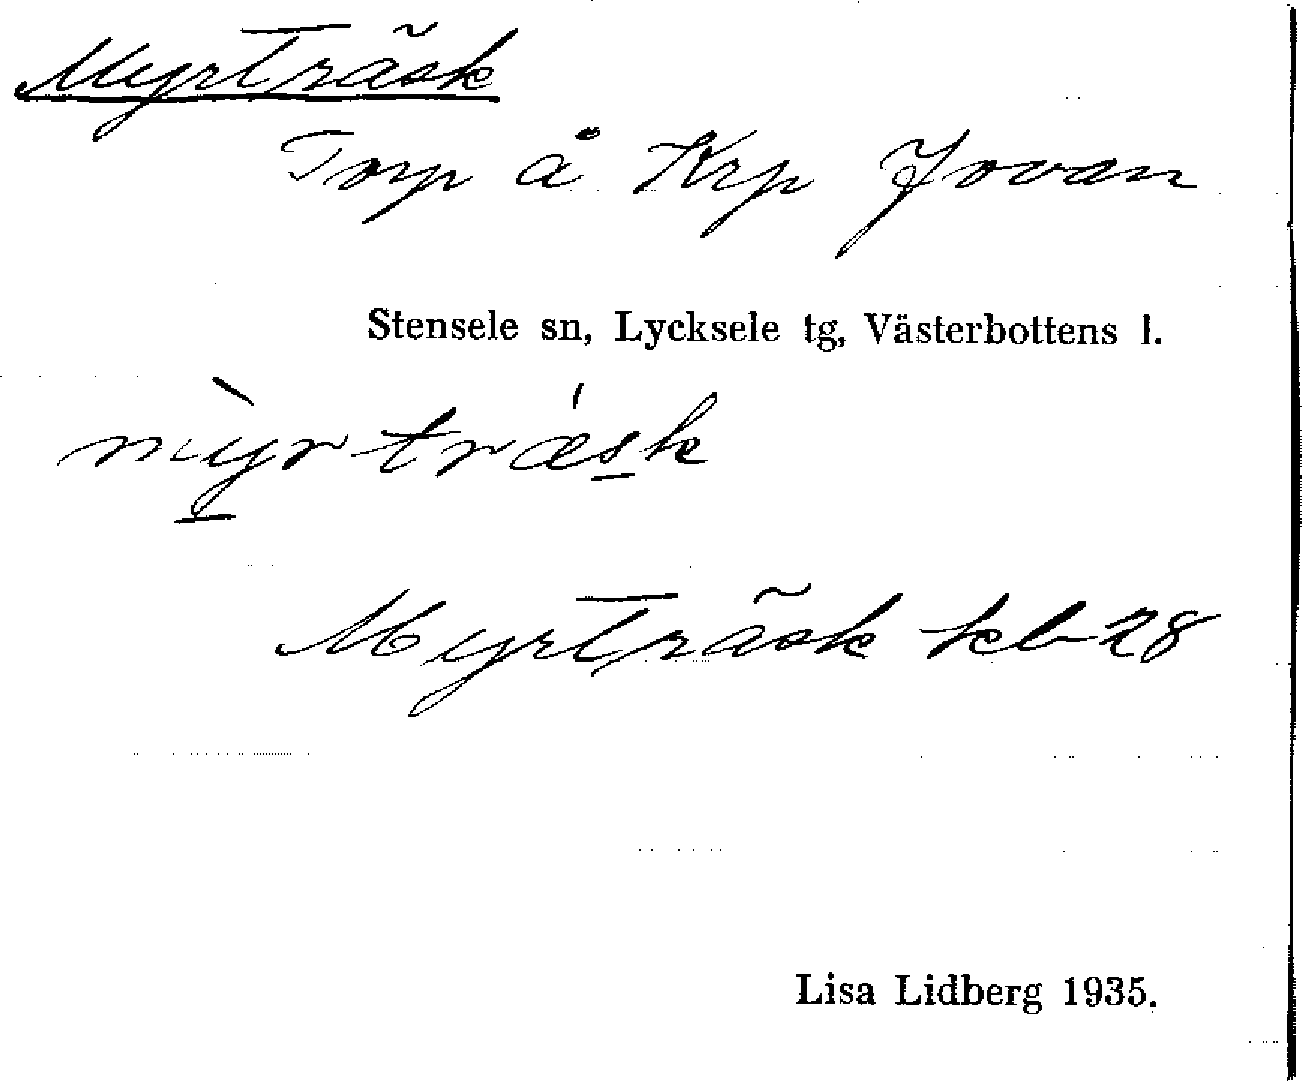 Myrträsk
Torp å Krp Jovan
Stensele sn, Lycksele tg, Västerbottens l.
mỳrtrǽsk
Myrträsk kb 28
Lisa Lidberg 1935.